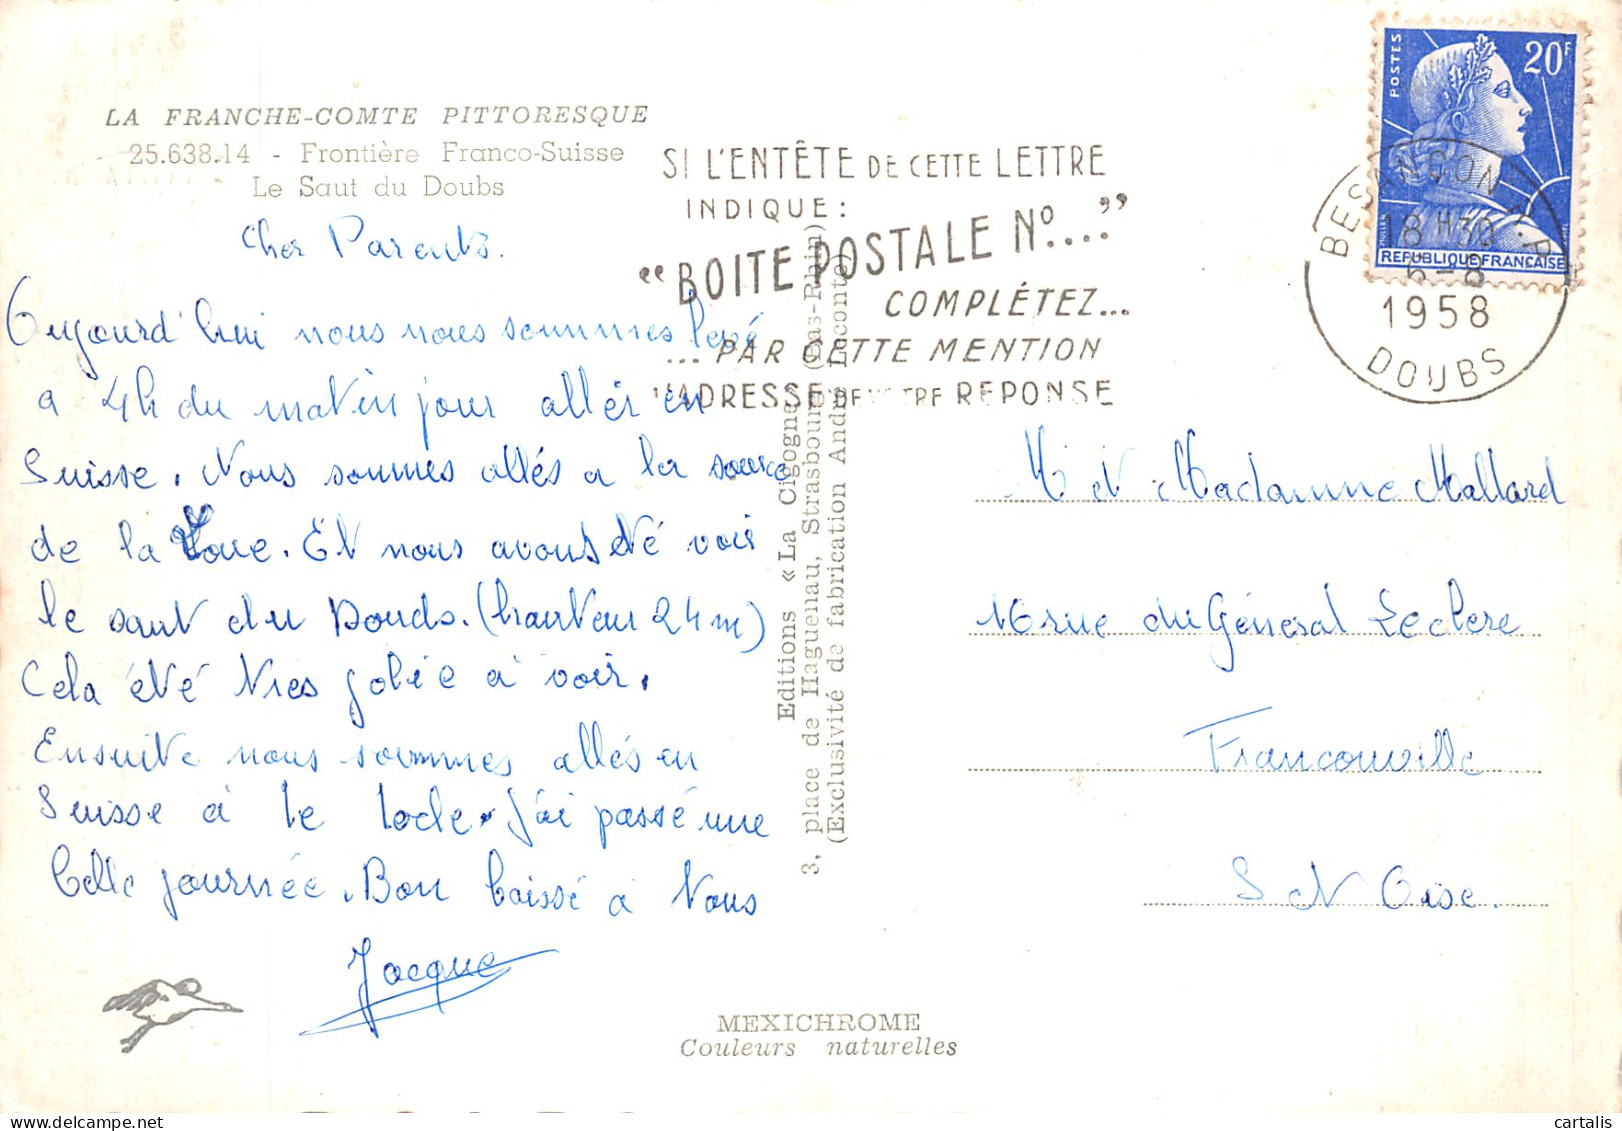 LA FRANCHE-COMTE PITTORESQUE
25.638.14 - Frontière Franco-Suisse
Le Saut du Doubs
Cher Parents.
Aujourd'hui nous nous sommes levé
a 4h du matin jour aller en
Suisse. Nous sommes allés a la source
de la Loue. Et nous avons été voir
le saut du Doubs. (hauteur 24 m)
Cela été tres jolie à voir.
Ensuite nous sommes allés en
Suisse à le locle. J'ai passé une
belle journée. Bon baissé à vous
Jacque
Editions « La Cigogne »
3, place de Haguenau, Strasbourg (Bas-Rhin)
(Exclusivité de fabrication André Leconte)
MEXICHROME
Couleurs naturelles
SI L'ENTÊTE DE CETTE LETTRE
INDIQUE :
“BOITE POSTALE No....”
COMPLÉTEZ...
...PAR CETTE MENTION
L'ADRESSE DE VOTRE REPONSE
POSTES
20F
REPUBLIQUE FRANCAISE
BESANCON R.P.
18 H30
6-8
1958
DOUBS
M et Madamme Mallard
16 rue du Général Leclere
Franconville
S et Oise.
cartalis